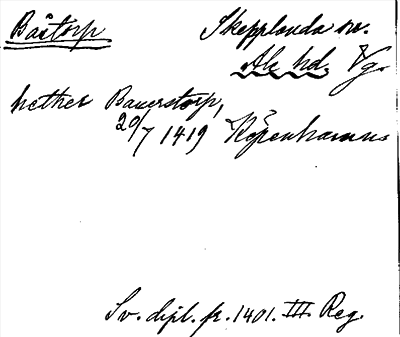 Båstorp Skepplanda sn.
Ale hd. Vg.
hether Bauerstorp,
20/7 1419 Köpenhamn
Sv. dipl. fr. 1401. III. Reg.